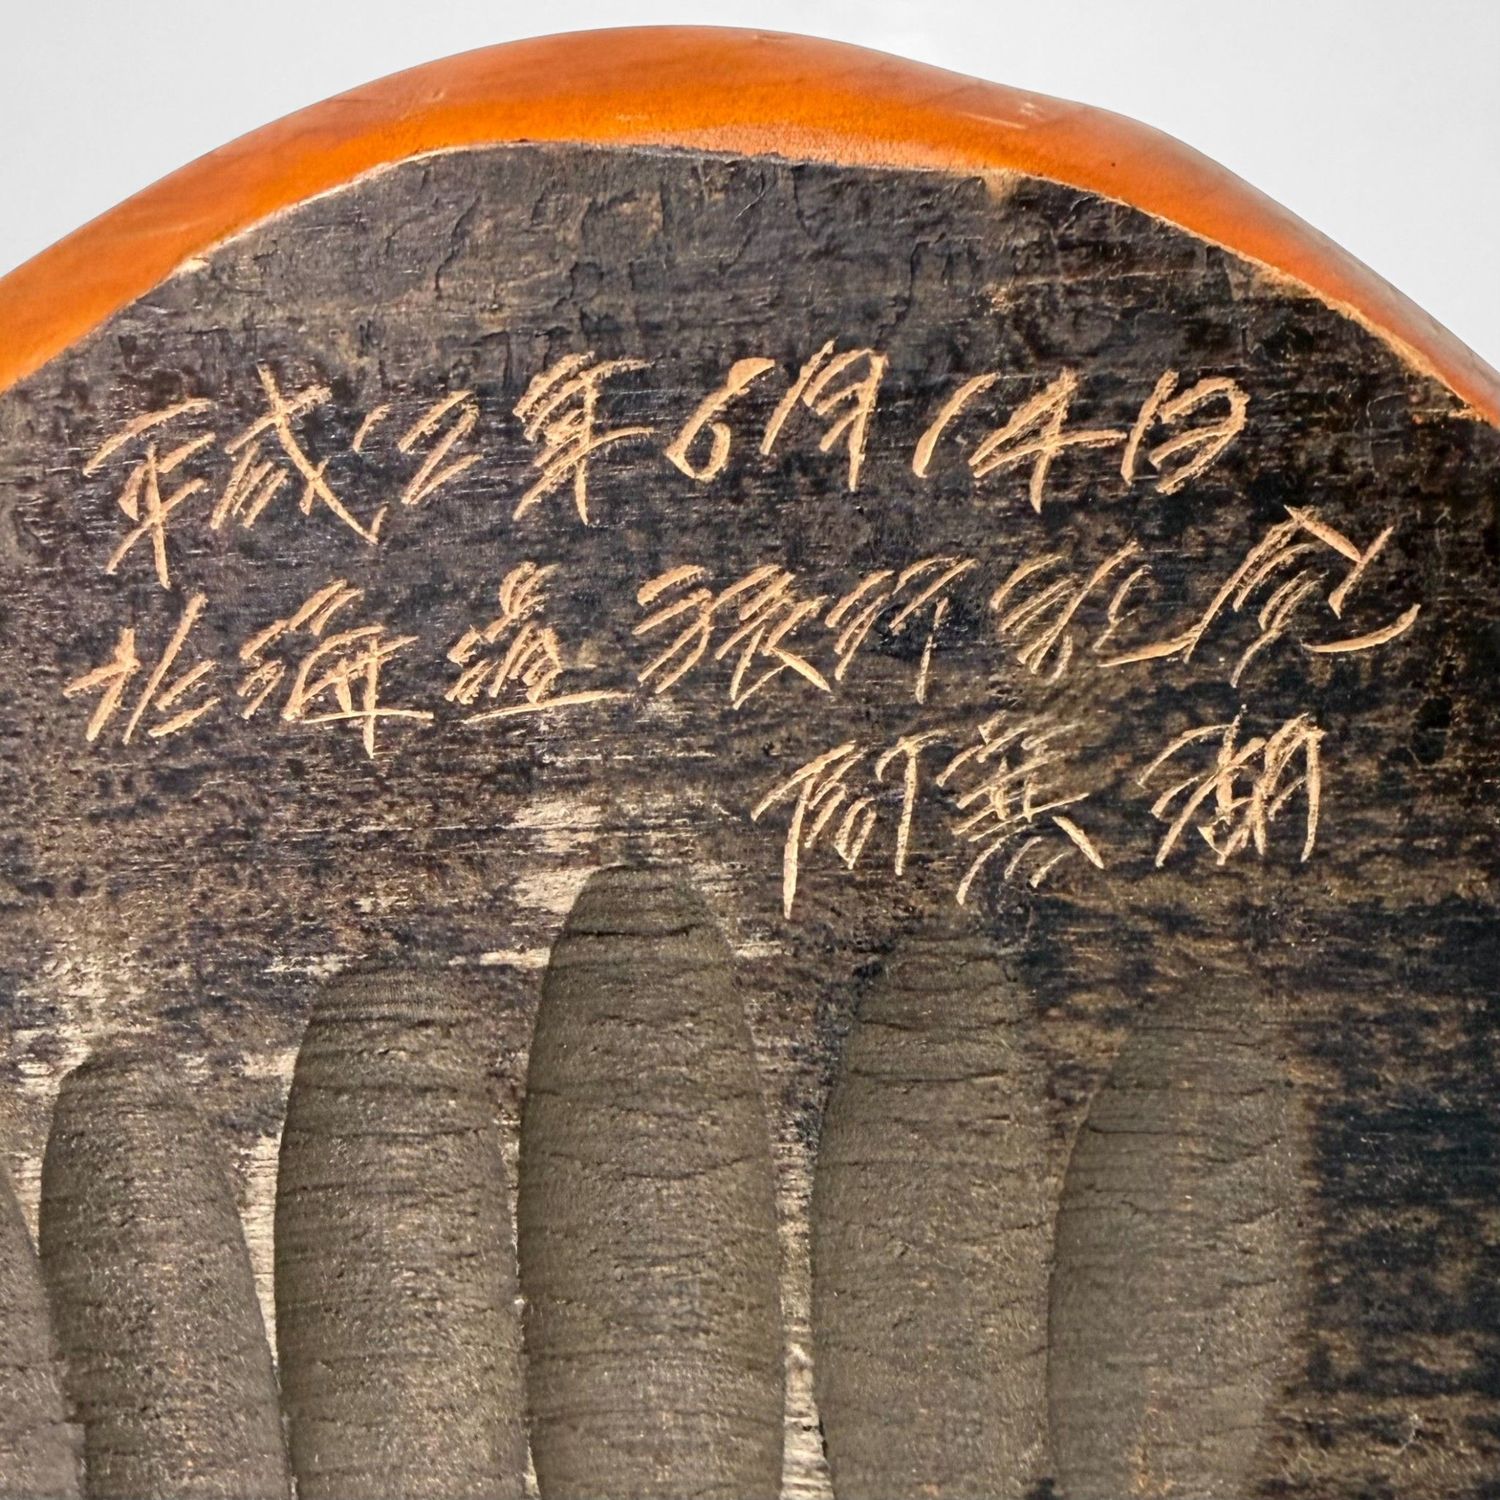 平成12年6月14日
北海道旅行記念
阿寒湖